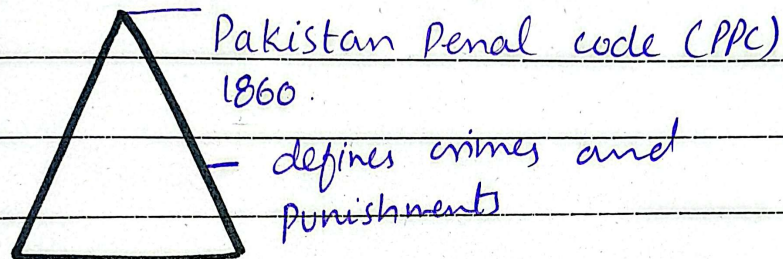 Pakistan Penal code (PPC)
1860.
- defines crimes and
punishments